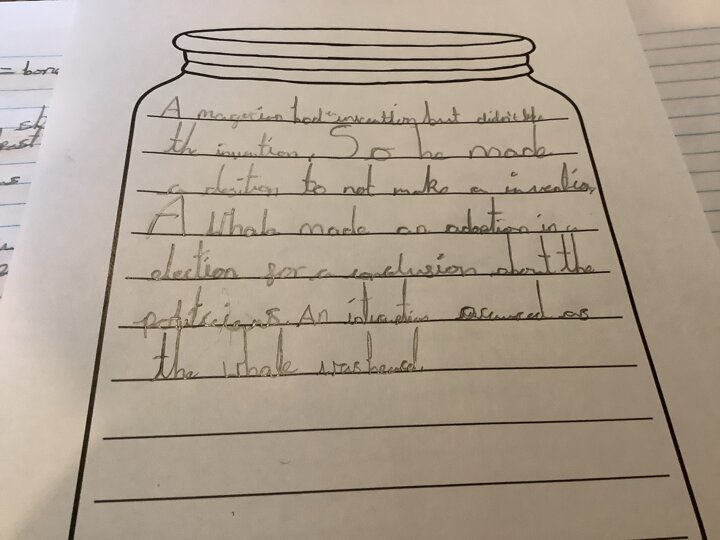 = bon
A magerian had invention but didn't like
the invention. So he made
a desition to not make a invention
A Whale made an adoption in a
election for a conclusion about the
politicians An as
the Whale was heard.